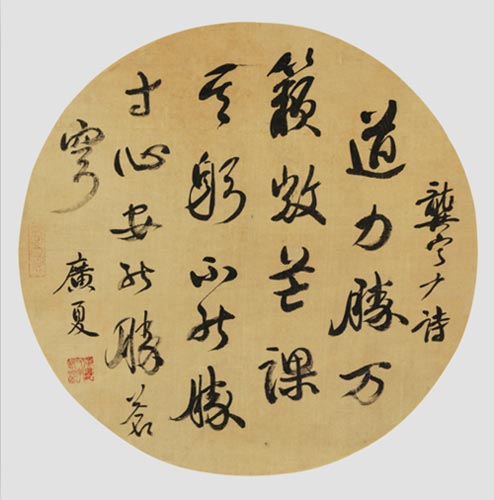 龔定厂詩
道力勝万
籟微芒課
其躬不能勝
寸心安能勝蒼
穹
廣夏